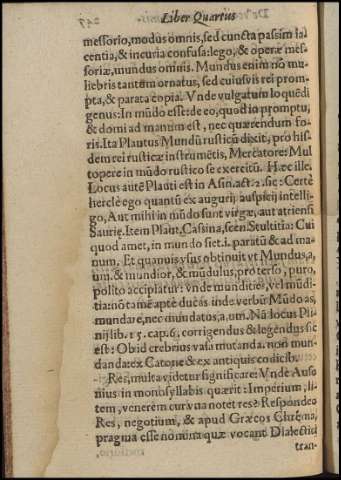 Liber Quartus
messorio, modus omnis, sed cuncta passim ia-
centia, & incuria confusa: lego, & operæ mes-
soriæ, mundus omnis. Mundus enim nō mu-
liebris tantùm ornatus, sed cuiusvis rei prom-
pta, & parata copia. Vnde vulgatum loquēdi
genus: In mūdo esse: de eo, quod in promptu,
& domi ad manum est, nec quærendum fo-
ris. Ita Plautus Mundū rusticū dixit, pro his-
dem rei rusticæ instrumētis, Mercatore: Mul
topere in mūdo rustico se exercitū. Hæc ille.
Locus autē Plauti est in Asin. act. 2. sic: Certè
herclè ego quantū ex augurij auspicij intelli-
go, Aut mihi in mūdo sunt virgæ, aut atriensi
Saurię. Item Plaut. Cassina, scen. Stultitia: Cui
quod amet, in mundo siet. i. paratū & ad ma-
num. Et quamuis vsus obtinuit vt Mundus, a,
um. & mundior, & mūdulus, pro terso, puro,
polito accipiatur: vnde mundities, vel mūdi-
tia: nō tamē aptè ducas inde verbū Mūdo as,
mundare, nec mundatus, a, um. Nā locus Pli-
nij lib. 15. cap. 6, corrigendus & legēdus sic
est: Ob id crebrius vasa mutanda. non mun-
danda: ex Catone & ex antiquis codicib.
Res, multa videtur significare: Vnde Auso
nius in monosyllabis quærit: Imperium, li-
tem, venerem cur vna notet res? Respondeo
Res, negotium, & apud Græcos Chrema,
pragma esse nomina quæ vocant Dialectici
tran-